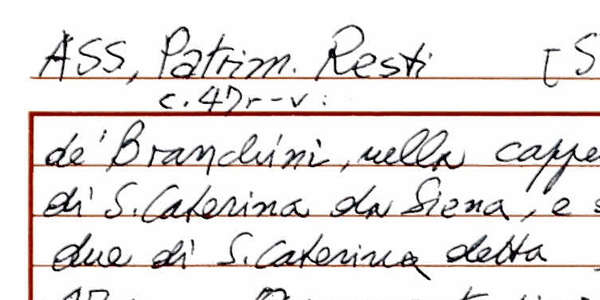 ASS, Patrim. Resti [S
c. 47r-v:
de' Branchini, nella cappe
di S. Caterina da Siena, e s
due di S. Caterina detta